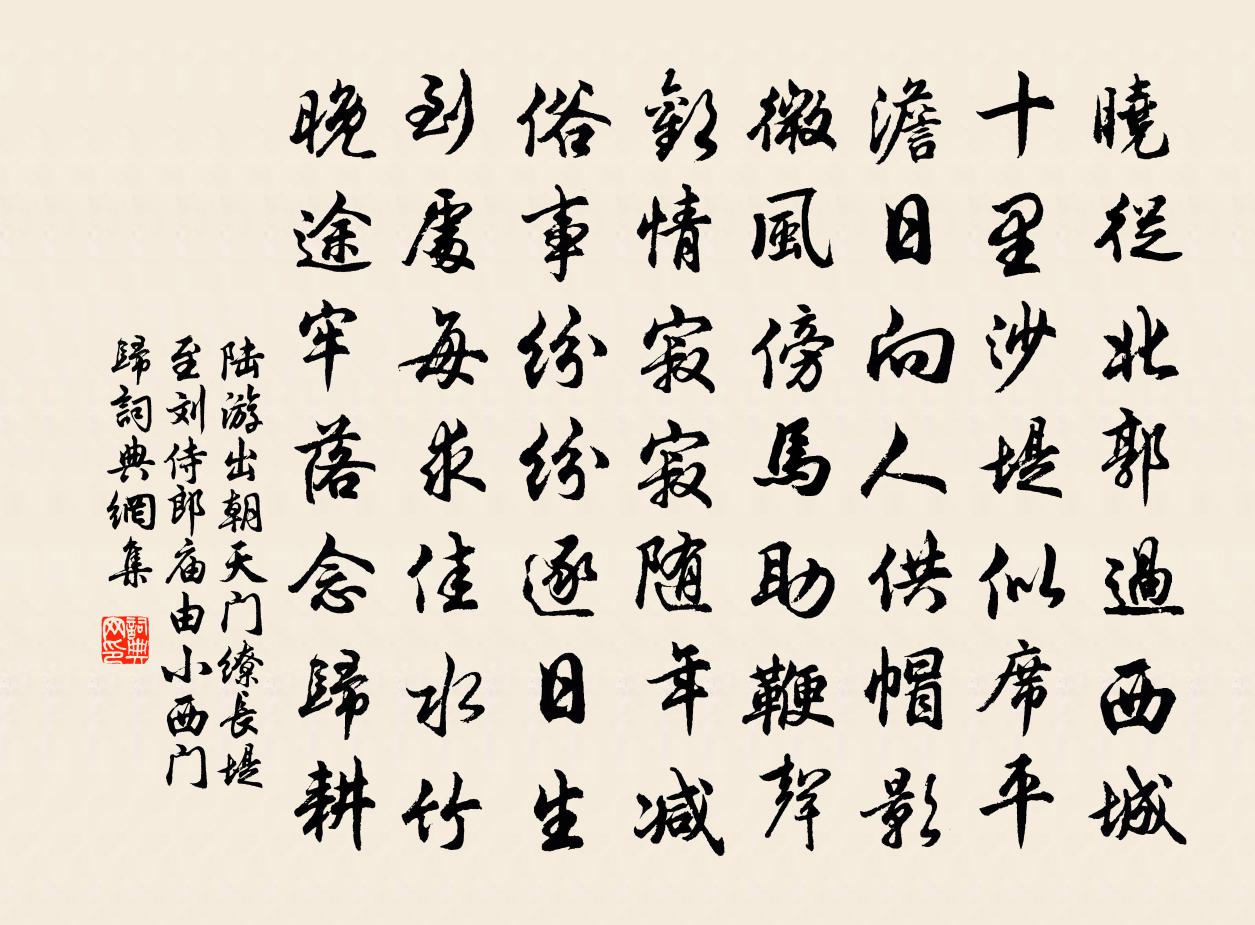 曉從北郭過西城
十里沙堤似席平
澹日向人供帽影
微風傍馬助鞭聲
歡情寂寂隨年減
俗事紛紛逐日生
到處每求佳水竹
晚途牢落念歸耕
陆游出朝天门缭長堤
至刘侍郎庙由小西门
歸詞典網集
詞典网印